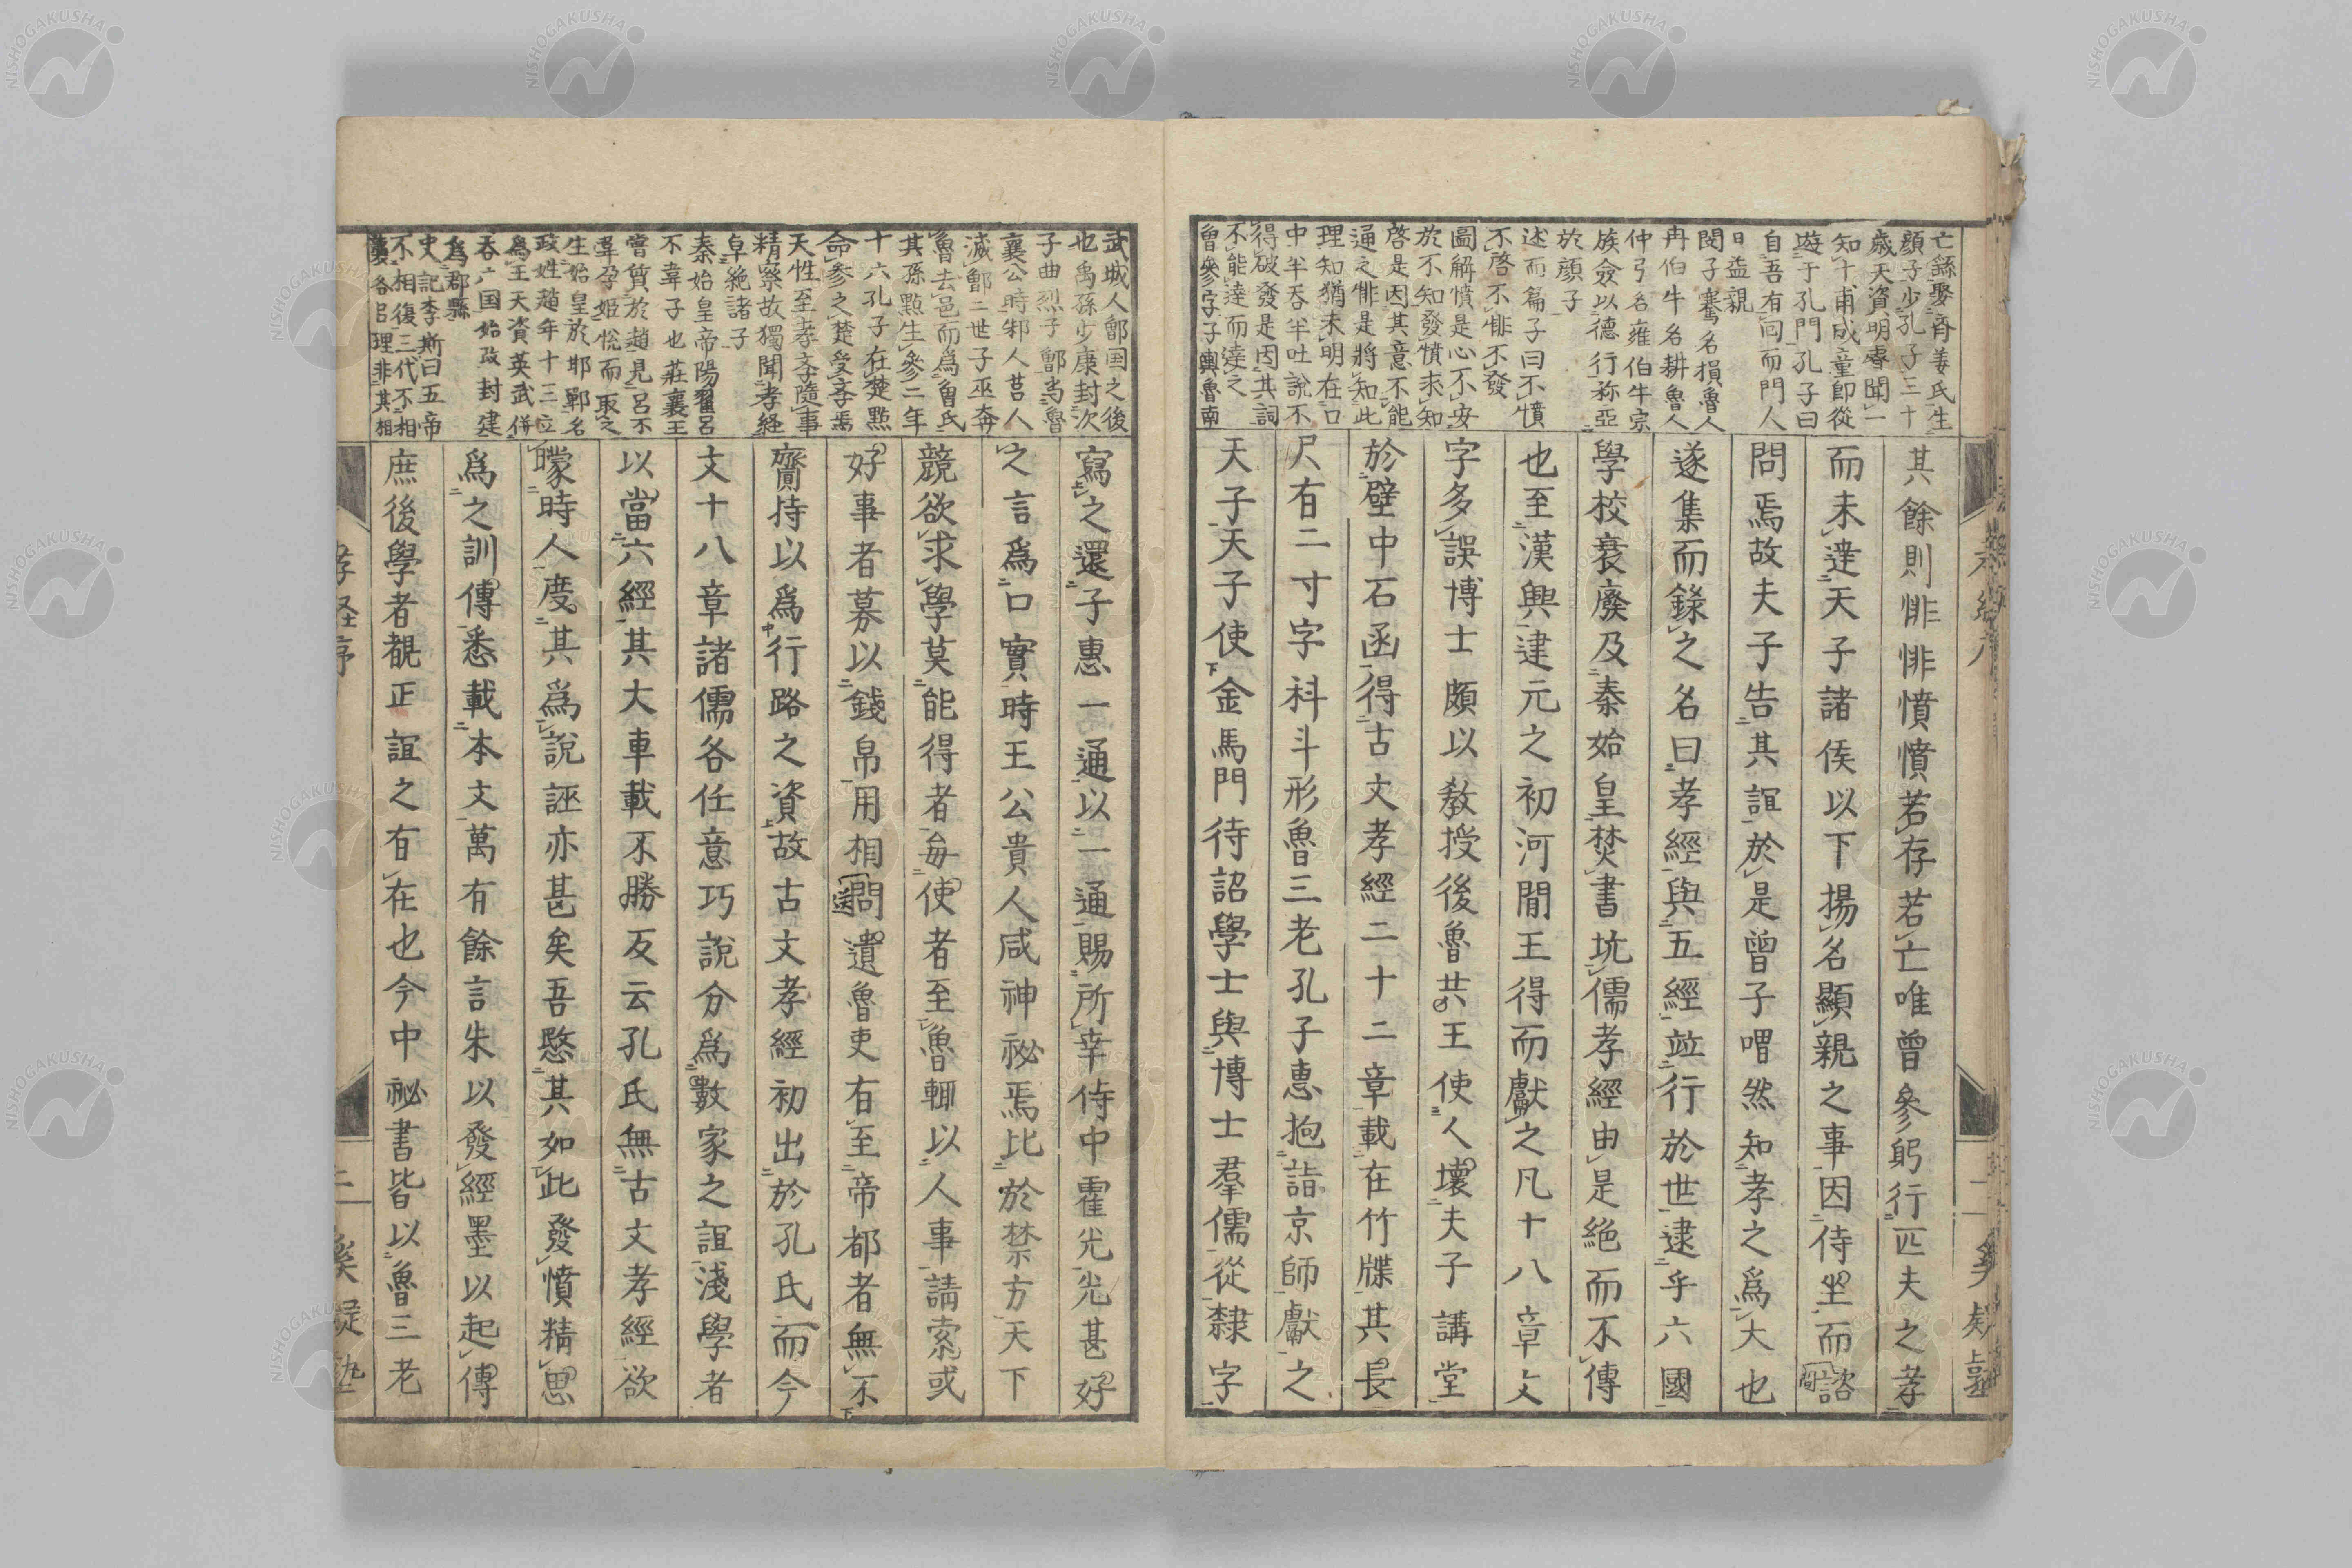 亡緜娶斉姜氏生
顔子少孔子三十
歳天資明睿聞一
知十甫成童即從
遊于孔門孔子曰
自吾有回而門人
日益親
閔子騫名損魯人
冉伯牛名耕魯人
仲弓名雍伯牛宗
族僉以德行称亞
於顔子
述而篇子曰不憤
不啓不悱不發
圖解憤是心不安
於不知發憤求知
啓是因其意不能
通之悱是將知此
理知猶未明在口
中半吞半吐說不
得破發是因其詞
不能達而達之
曾參字子輿魯南
其餘則悱悱憤憤若存若亡唯曾參躬行匹夫之孝
而未達天子諸侯以下揚名顯親之事因侍坐而諮
問焉故夫子告其誼於是曾子喟然知孝之爲大也
遂集而錄之名曰孝經與五經竝行於世逮乎六國
學校衰廢及秦始皇焚書坑儒孝經由是絕而不傳
也至漢興建元之初河間王得而獻之凡十八章文
字多誤博士頗以敎授後魯共王使人壞夫子講堂
於壁中石函得古文孝經二十二章載在竹牒其長
尺有二寸字科斗形魯三老孔子惠抱詣京師獻之
天子天子使金馬門待詔學士與博士羣儒從隸字
武城人鄫国之後
也禹孫少康封次
子曲烈子鄫当魯
襄公時邾人莒人
滅鄫二世子巫奔
魯去邑而爲曽氏
其孫點生參二年
十六孔子在楚點
命參之楚受孝焉
天性至孝孝隨事
精察故獨聞孝経
卓絶諸子
秦始皇帝陽翟呂
不韋子也莊襄王
嘗質於趙見呂不
韋孕姫悅而取之
生始皇於耶鄲名
政姓趙年十三立
爲王天資英武併
吞六国始改封建
爲郡縣
史記李斯曰五帝
不相復三代不相
襲各㠯理非其相
寫之還子惠一通以一通賜所幸侍中霍光光甚好
之言爲口實時王公貴人咸神祕焉比於禁方天下
競欲求學莫能得者每使者至魯輒以人事請索或
好事者募以錢帛用相問遺魯吏有至帝都者無不
齎持以爲行路之資故古文孝經初出於孔氏而今
文十八章諸儒各任意巧說分爲數家之誼淺學者
以當六經其大車載不勝反云孔氏無古文孝經欲
矇時人度其爲說誣亦甚矣吾愍其如此發憤精思
爲之訓傳悉載本文萬有餘言朱以發經墨以起傳
庶後學者覩正誼之有在也今中祕書皆以魯三老